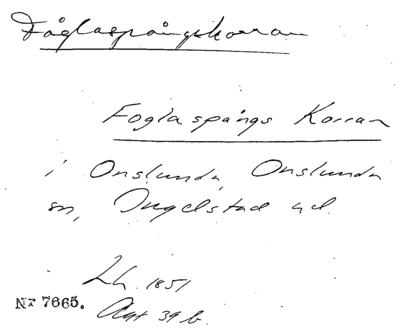 Fåglaspångskorran
Foglaspångs Korran
i Onslunda, Onslunda
sn, Ingelstad hd.
Lh. 1851
Akt 39 b.
Nr 7665.